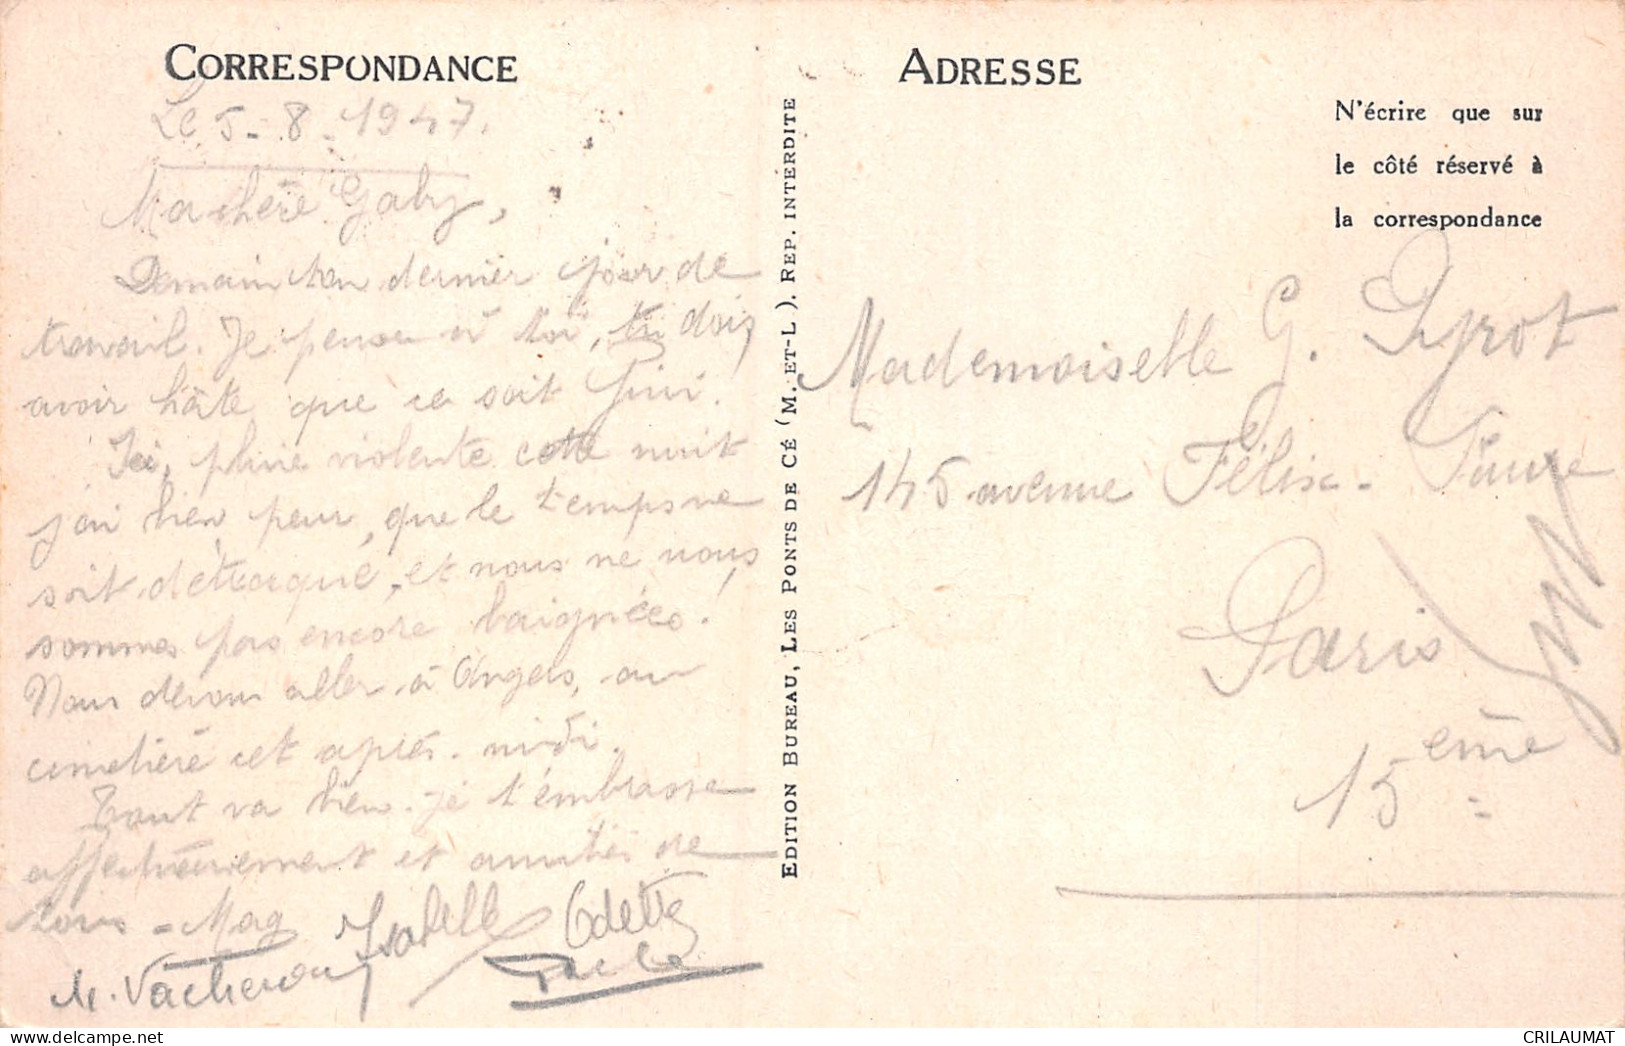 CORRESPONDANCE
Le 5-8-1947.
Ma chère Gaby,
Demain ton dernier jour de
travail. Je pense à toi, tu dois
avoir hâte que ce soit fini.
Ici, pluie violente cette nuit
j'ai bien peur, que le temps ne
soit détraqué, et nous ne nous
sommes pas encore baignées.
Nous devons aller à Angers, au
cimetière cet après-midi.
Tout va bien. Je t'embrasse
affectueusement et amitiés de
tous - Mag
Isabelle Odette
M. Vacheron
EDITION BUREAU, LES PONTS DE CÉ (M. ET-L.). REP. INTERDITE
ADRESSE
N'écrire que sur
le côté réservé à
la correspondance
Mademoiselle G. Pyrot
145 avenue Félix-Faure
Paris
15ème
CRILAUMAT